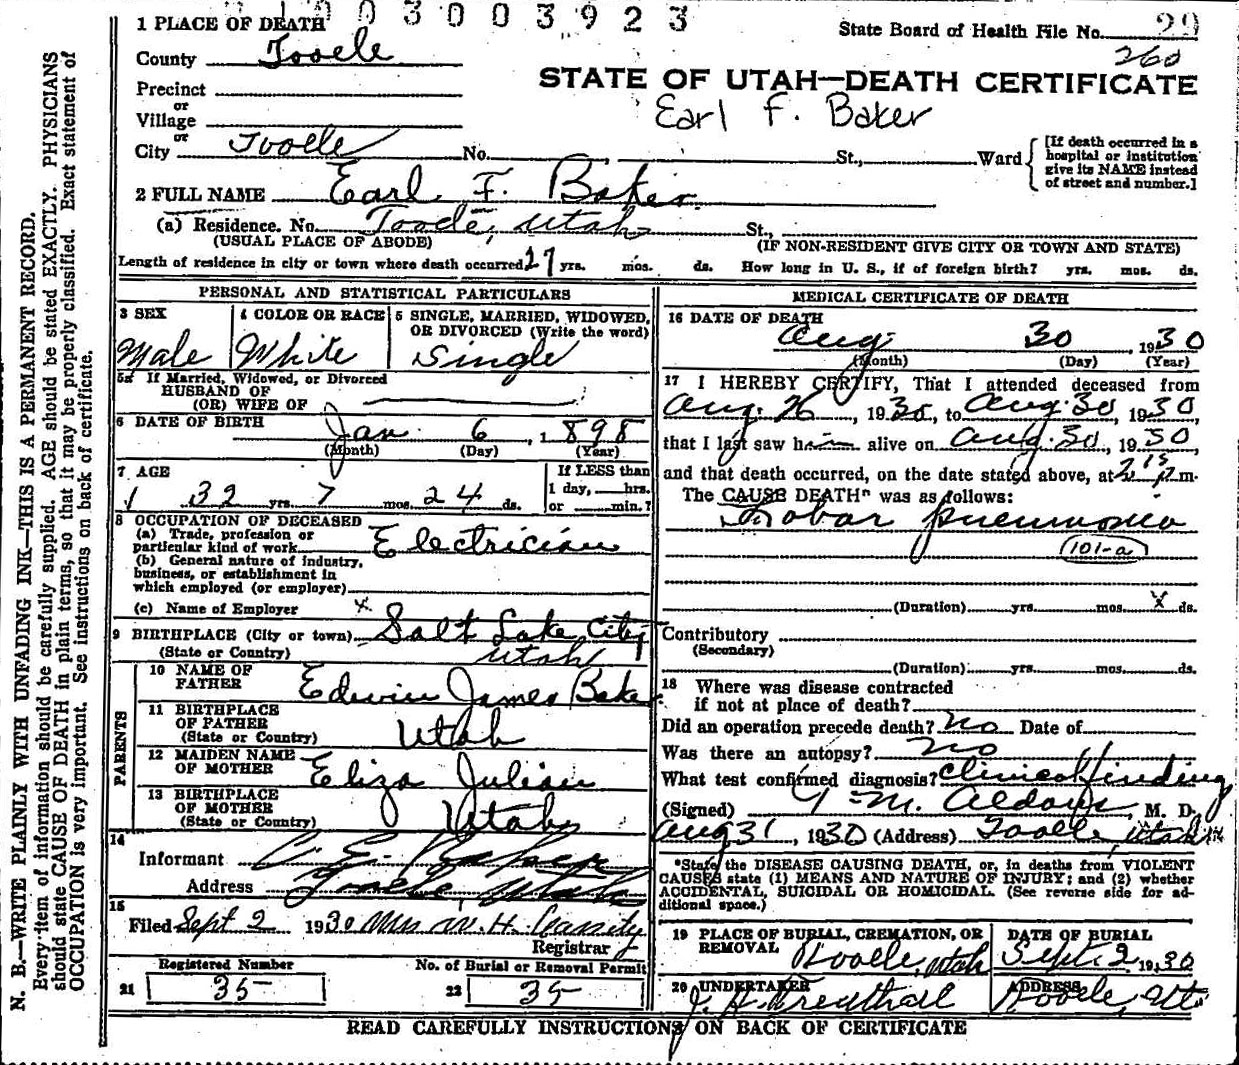 003003923
1 PLACE OF DEATH
State Board of Health File No. 29
260
County Tooele
STATE OF UTAH—DEATH CERTIFICATE
Precinct
or
Village
Earl F. Baker
or
City Tooele No. St., Ward
[If death occurred in a hospital or institution give its NAME instead of street and number.]
2 FULL NAME Earl F. Baker
(a) Residence. No. Tooele, Utah St.,
(USUAL PLACE OF ABODE) (IF NON-RESIDENT GIVE CITY OR TOWN AND STATE)
Length of residence in city or town where death occurred 27 yrs. mos. ds. How long in U. S., if of foreign birth? yrs. mos. ds.
PERSONAL AND STATISTICAL PARTICULARS
3 SEX
Male
4 COLOR OR RACE
White
5 SINGLE, MARRIED, WIDOWED, OR DIVORCED (Write the word)
Single
5a If Married, Widowed, or Divorced
HUSBAND OF
(OR) WIFE OF
6 DATE OF BIRTH Jan 6, 1898
(Month) (Day) (Year)
7 AGE
32 yrs. 7 mos. 24 ds.
If LESS than
1 day, hrs.
or min.?
8 OCCUPATION OF DECEASED
(a) Trade, profession or
particular kind of work Electrician
(b) General nature of industry,
business, or establishment in
which employed (or employer)
(c) Name of Employer X
9 BIRTHPLACE (City or town) Salt Lake City
(State or Country) Utah
PARENTS
10 NAME OF FATHER Edwin James Baker
11 BIRTHPLACE OF FATHER
(State or Country) Utah
12 MAIDEN NAME OF MOTHER Eliza Julian
13 BIRTHPLACE OF MOTHER
(State or Country) Utah
14
Informant E. Baker
Address Tooele Utah
15
Filed Sept 2 1930 Mrs W. H. Cassity
Registrar
Registered Number
21 35
No. of Burial or Removal Permit
22 35
MEDICAL CERTIFICATE OF DEATH
16 DATE OF DEATH
Aug 30, 1930
(Month) (Day) (Year)
17 I HEREBY CERTIFY, That I attended deceased from
Aug. 26, 1930, to Aug. 30, 1930,
that I last saw him alive on Aug. 30, 1930,
and that death occurred, on the date stated above, at 2 15 P m.
The CAUSE DEATH* was as follows:
Lobar pneumonia
101-a
(Duration) yrs. mos. X ds.
Contributory
(Secondary)
(Duration) yrs. mos. ds.
18 Where was disease contracted
if not at place of death?
Did an operation precede death? no Date of
Was there an autopsy? no
What test confirmed diagnosis? Clinical finding
(Signed) M. Aldous, M. D.
Aug 31, 1930 (Address) Tooele, Utah
*State the DISEASE CAUSING DEATH, or, in deaths from VIOLENT
CAUSES state (1) MEANS AND NATURE OF INJURY; and (2) whether
ACCIDENTAL, SUICIDAL OR HOMICIDAL. (See reverse side for ad-
ditional space.)
19 PLACE OF BURIAL, CREMATION, OR REMOVAL
Tooele, Utah
DATE OF BURIAL
Sept. 2 1930
20 UNDERTAKER
ADDRESS
Tooele, Ut.
READ CAREFULLY INSTRUCTIONS ON BACK OF CERTIFICATE
N. B.—WRITE PLAINLY WITH UNFADING INK—THIS IS A PERMANENT RECORD.
Every item of information should be carefully supplied. AGE should be stated EXACTLY. PHYSICIANS
should state CAUSE OF DEATH in plain terms, so that it may be properly classified. Exact statement of
OCCUPATION is very important. See instructions on back of certificate.